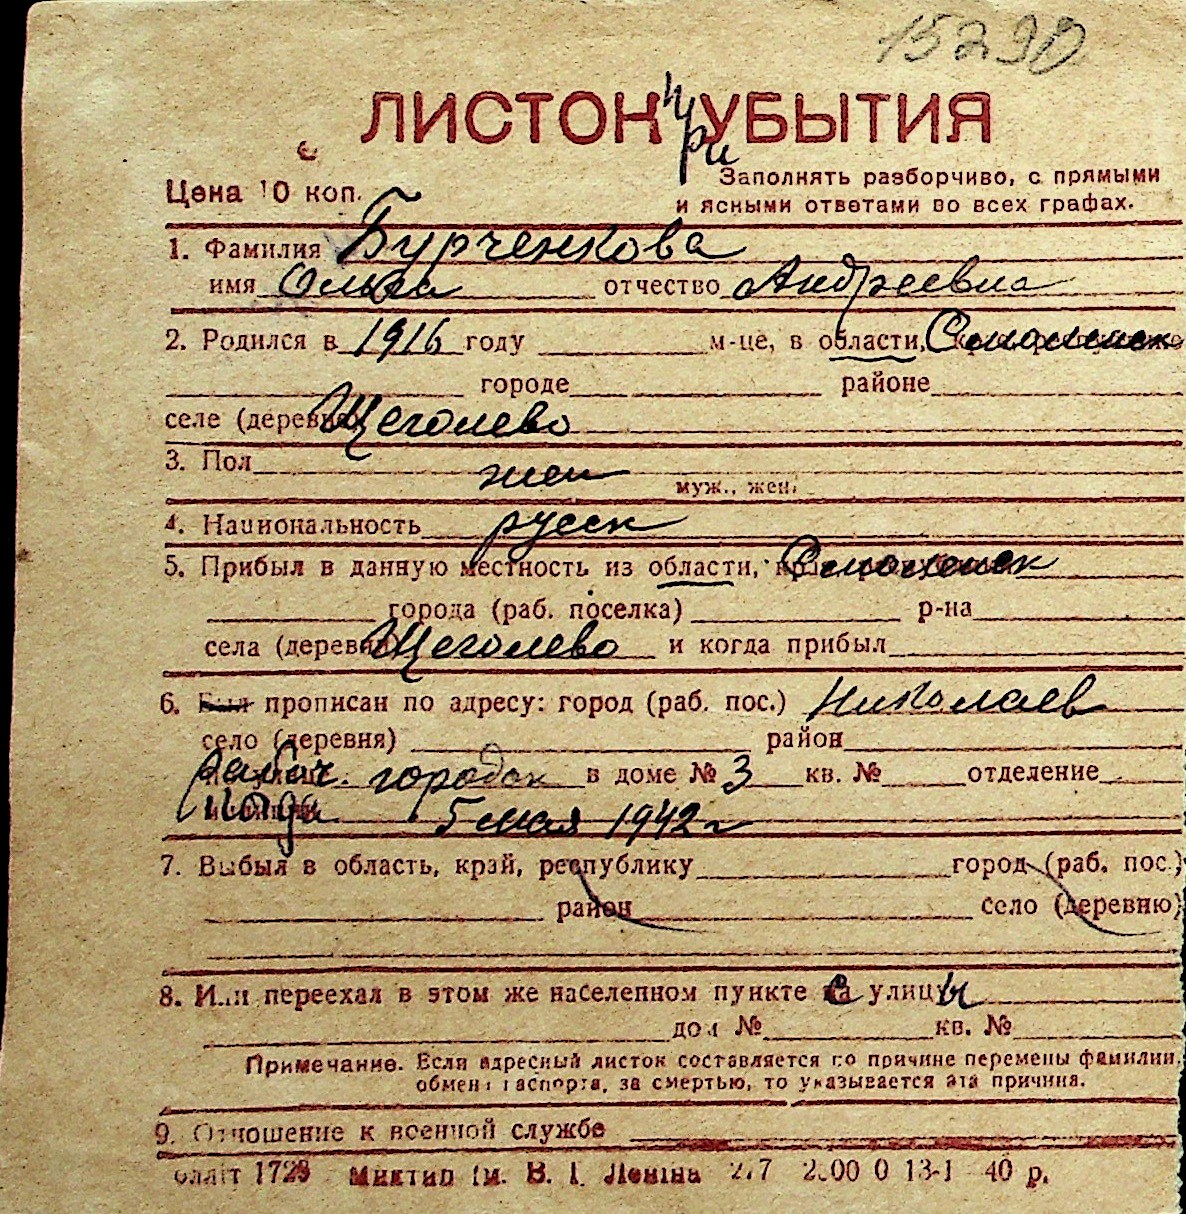 15290
ЛИСТОК при УБЫТИЯ
Цена 10 коп.
Заполнять разборчиво, с прямыми
и ясными ответами во всех графах.
1. Фамилия Бурченкова
имя Ольга отчество Андреевна
2. Родился в 1916 году м-це, в области, Смоленск
городе районе
селе (деревне) Щеголево
3. Пол жен
муж., жен.
4. Национальность русск
5. Прибыл в данную местность из области, Смоленск
города (раб. поселка) р-на
села (деревни) Щеголево и когда прибыл
6. Был прописан по адресу: город (раб. пос.) Николаев
село (деревня) район
рабоч. городок в доме № 3 кв. № отделение
когда 5 мая 1942 г
7. Выбыл в область, край, республику город (раб. пос.)
район село (деревню)
8. Или переехал в этом же населенном пункте с улицы
дом № кв. №
Примечание. Если адресный листок составляется по причине перемены фамилии,
обмена паспорта, за смертью, то указывается эта причина.
9. Отношение к военной службе
1723 Миктип ім. В. І. Леніна 13-I 40 р.